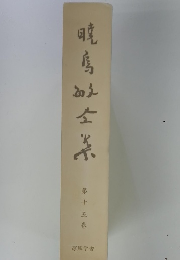 暁烏敏全集
第十三巻